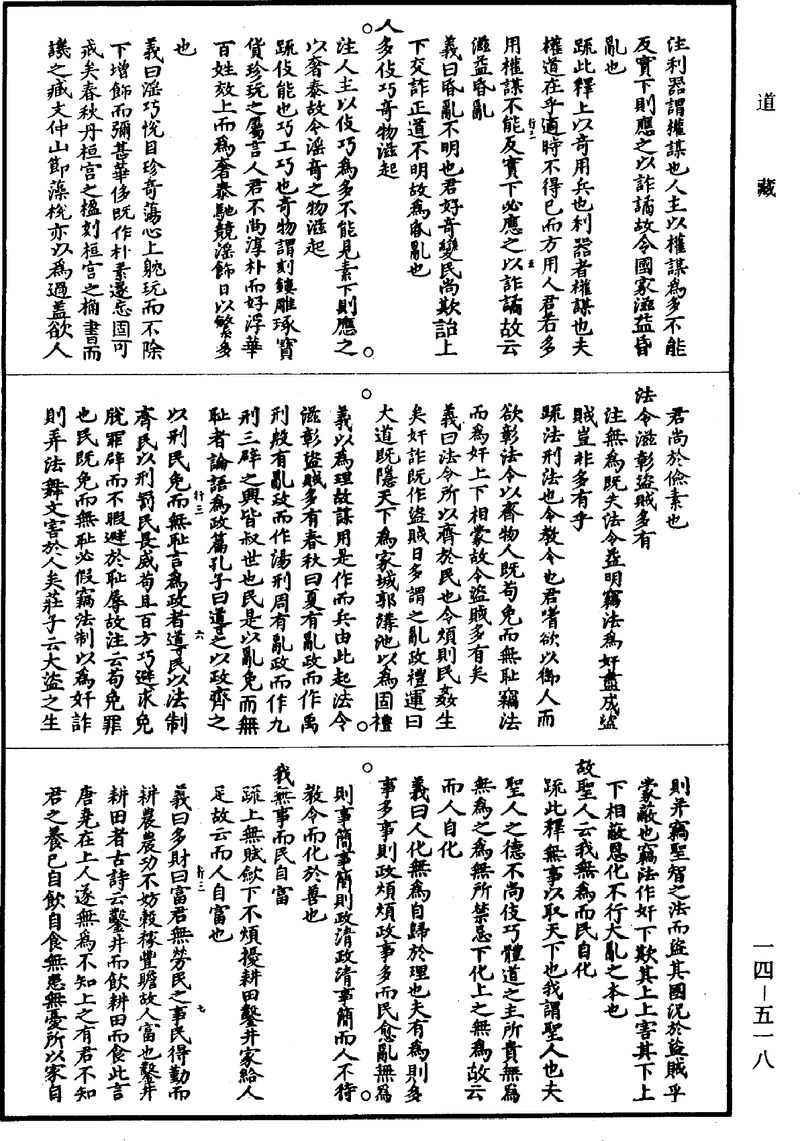 道藏
注利器謂權謀也人主以權謀為多不能
反實下則應之以詐譎故令國家滋益昏
亂也
疏此釋上以奇用兵也利器者權謀也夫
權道在乎適時不得已而方用人君若多
用權謀不能反實下必應之以詐譎故云
滋益昏亂
義曰昏亂不明也君好奇變民尚欺詒上
下交詐正道不明故為昏亂也
人多伎巧奇物滋起
注人主以伎巧為多不能見素下則應之
以奢泰故令淫奇之物滋起
疏伎能也巧工巧也奇物謂刻鏤雕琢寶
貨珍玩之屬言人君不尚淳朴而好浮華
百姓效上而為奢泰馳競淫飾日以繁多
也
義曰淫巧悅目珍奇蕩心上躭玩而不除
下增飾而彌甚華侈既作朴素遂忘固可
戒矣春秋丹桓宮之楹刻桓宮之桷書而
譏之臧文仲山節藻梲亦以為過蓋欲人
君尚於儉素也
法令滋彰盜賊多有
注無為既失法令益明竊法為奸盡成盜
賊豈非多有乎
疏法刑法也令教令也君嗜欲以御人而
欲彰法令以齊物人既苟免而無恥竊法
而為奸上下相蒙故令盜賊多有矣
義曰法令所以齊於民也令煩則民姦生
矣奸詐既作盜賊日多謂之亂政禮運曰
大道既隱天下為家城郭溝池以為固禮
義以為理故謀用是作而兵由此起法令
滋彰盜賊多有春秋曰夏有亂政而作禹
刑殷有亂政而作湯刑周有亂政而作九
刑三辟之興皆叔世也民是以亂免而無
恥者論語為政篇孔子曰導之以政齊之
以刑民免而無恥言為政者導民以法制
齊民以刑罰民畏威苟且百方巧避求免
脫罪辟而不暇避於恥辱故注云苟免罪
也民既免而無恥必假竊法制以為奸詐
則弄法舞文害於人矣莊子云大盜之生
則并竊聖智之法而盜其國況於盜賊乎
蒙蔽也竊法作奸下欺其上上害其下上
下相蔽恩化不行大亂之本也
故聖人云我無為而民自化
疏此釋無事以取天下也我謂聖人也夫
聖人之德不尚伎巧體道之主所貴無為
無為之為無所禁忌下化上之無為故云
而人自化
義曰人化無為自歸於理也夫有為則多
事多事則政煩煩政事多而民愈亂無為
則事簡事簡則政清政清事簡而人不待
教令而化於善也
我無事而民自富
疏上無賦斂下不煩擾耕田鑿井家給人
足故云而人自富也
義曰多財曰富君無勞民之事民得勤而
耕農農功不妨穀稼豐贍故人富也鑿井
耕田者古詩云鑿井而飲耕田而食此言
唐堯在上人遂無為不知上之有君不知
君之養己自飲自食無患無憂所以家自
一四—五一八